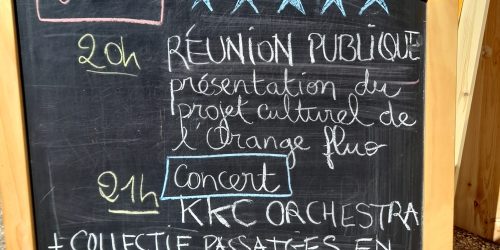 20h RÉUNION PUBLIQUE
présentation du
projet culturel de
l'Orange fluo
21h Concert
KKC ORCHESTRA
+ COLLECTIF PASSATGES EN